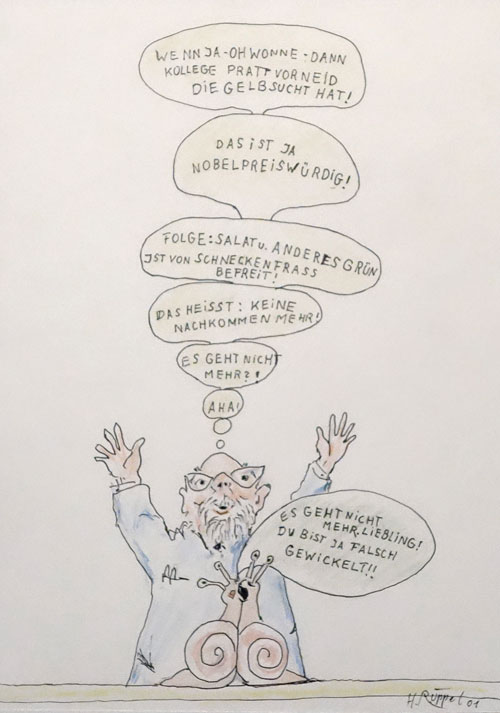 WENN JA - OH WONNE - DANN
KOLLEGE PRATT VOR NEID
DIE GELBSUCHT HAT!
DAS IST JA
NOBELPREISWÜRDIG!
FOLGE: SALAT U. ANDERES GRÜN
IST VON SCHNECKENFRASS
BEFREIT!
DAS HEISST: KEINE
NACHKOMMEN MEHR!
ES GEHT NICHT
MEHR?!
AHA!
ES GEHT NICHT
MEHR, LIEBLING!
DU BIST JA FALSCH
GEWICKELT!!
H. Rüppel 01